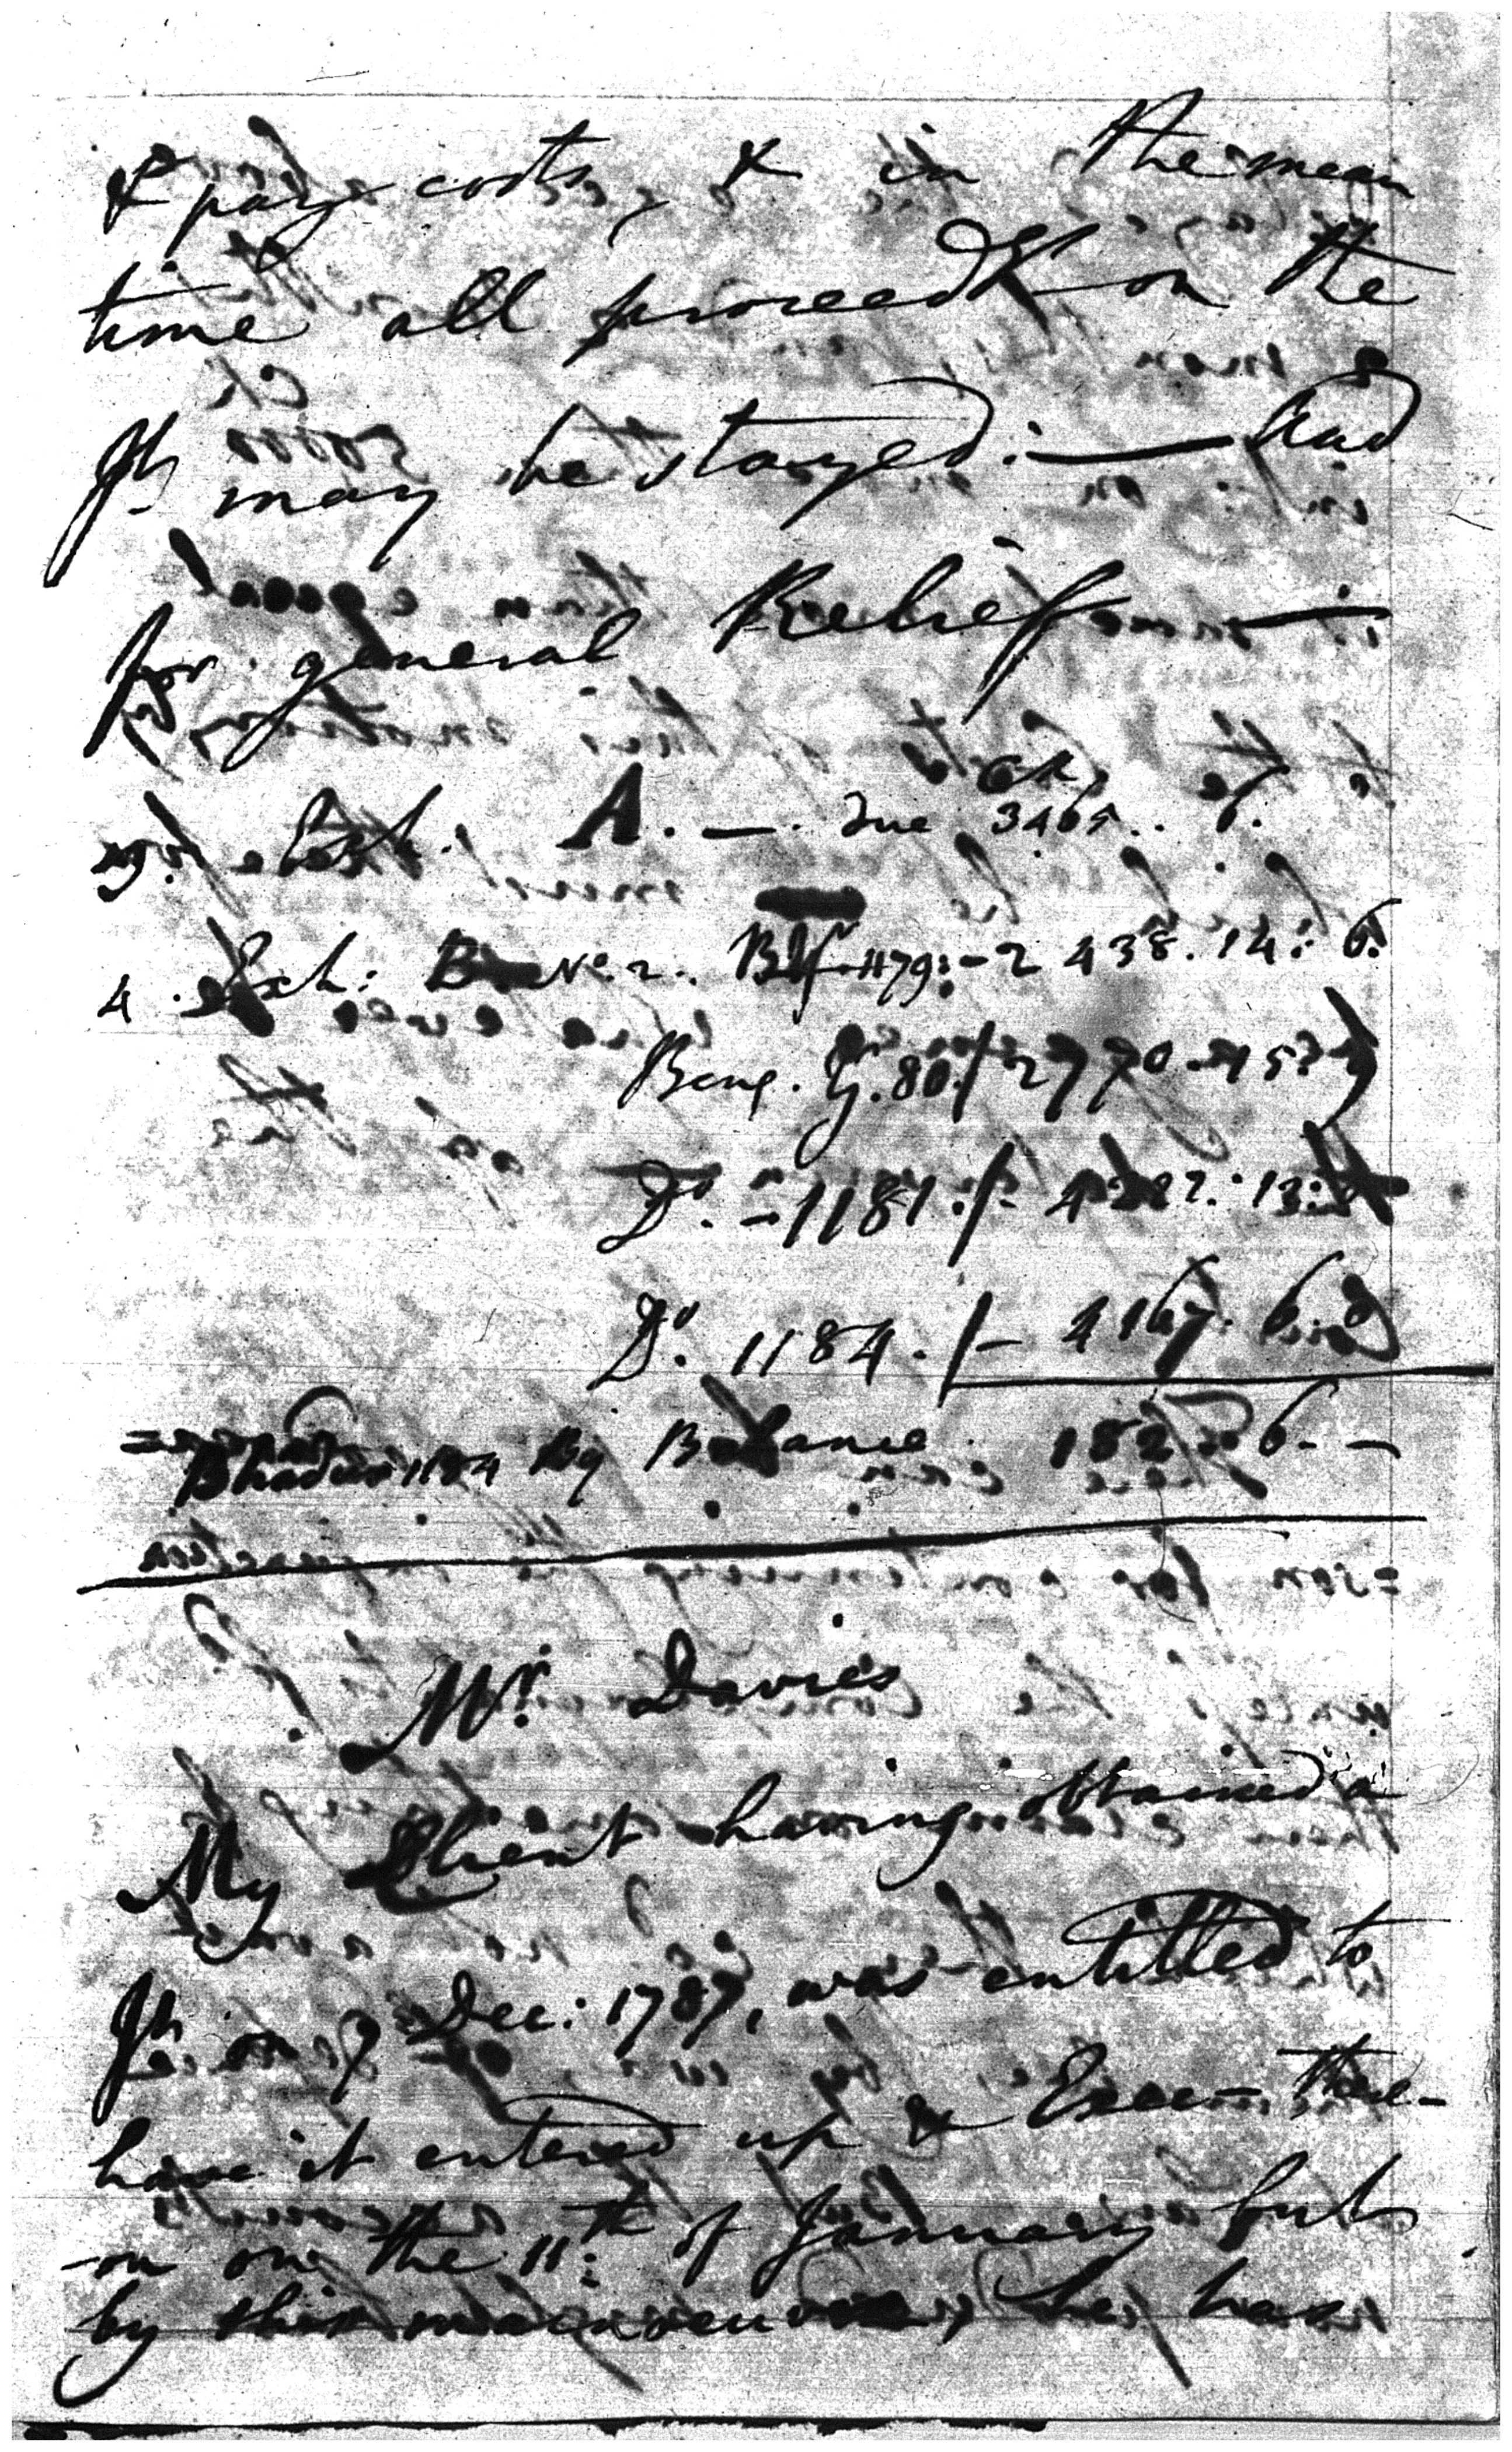 & pay costs, & in the mean
time all proceedgs on the
Jt. may be stayed: — And
for general Relief —
Exh. A. — . due 3465.. 6.
4. Exh: B No. 2. 1179: - 2 438. 14: 6.
Beng. Y. 80 / 2770 - 15:
Do. - 1181. / -
Do. 1184. / - 4167. 6:
Bhadur 1184 By Balance
Mr. Davies
My Client having obtained a
Jt. on 7 Dec: 1787, was entitled to
have it entered up & Exec= there-
-on on the 11th of January but
by this manoeuvre he has